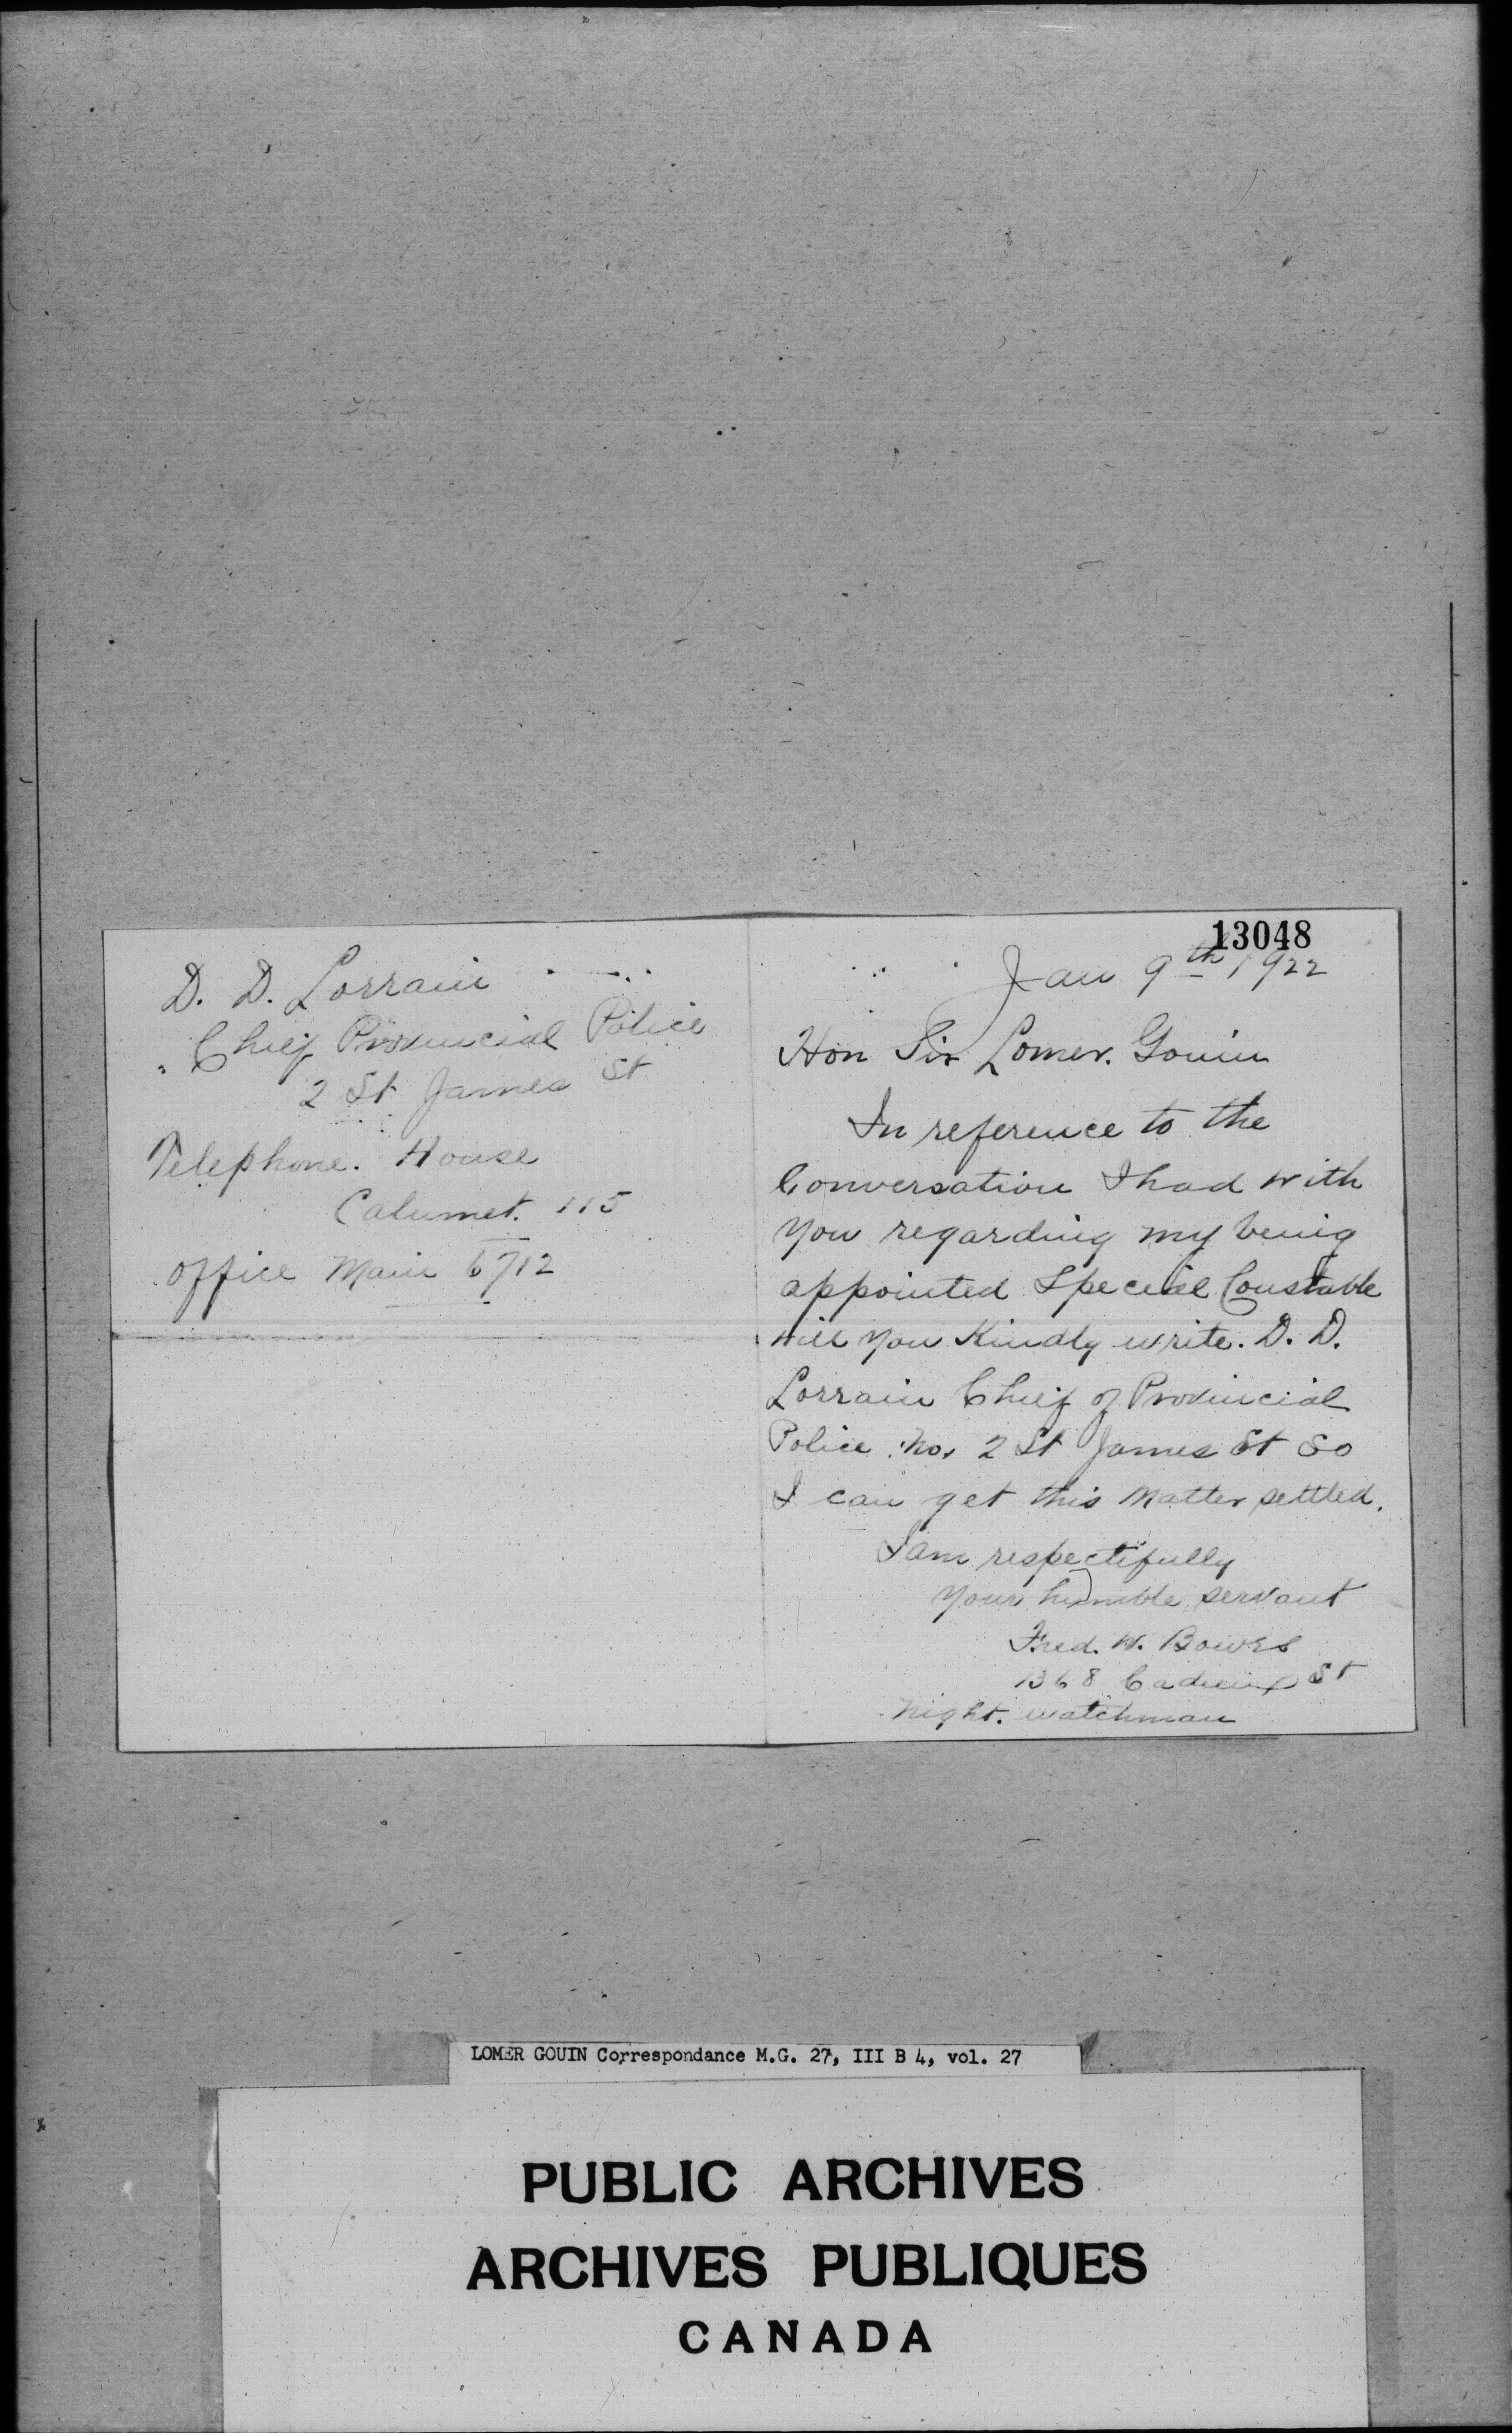 D. D. Lorrain
Chief Provincial Police
2 St James St
Telephone. House
Calumet. 115
office Main 6712
13048
Jan 9th 1922
Hon Sir Lomer. Gouin
In reference to the
Conversation I had with
you regarding my being
appointed Special Constable
will you Kindly write. D. D.
Lorrain Chief of Provincial
Police. No. 2 St James St So
I can get this Matter settled.
I am respectifully
your humble servant
Fred. W. Bowes
1368 Cadieux St
Night. watchman
LOMER GOUIN Correspondance M.G. 27, III B 4, vol. 27
PUBLIC ARCHIVES
ARCHIVES PUBLIQUES
CANADA